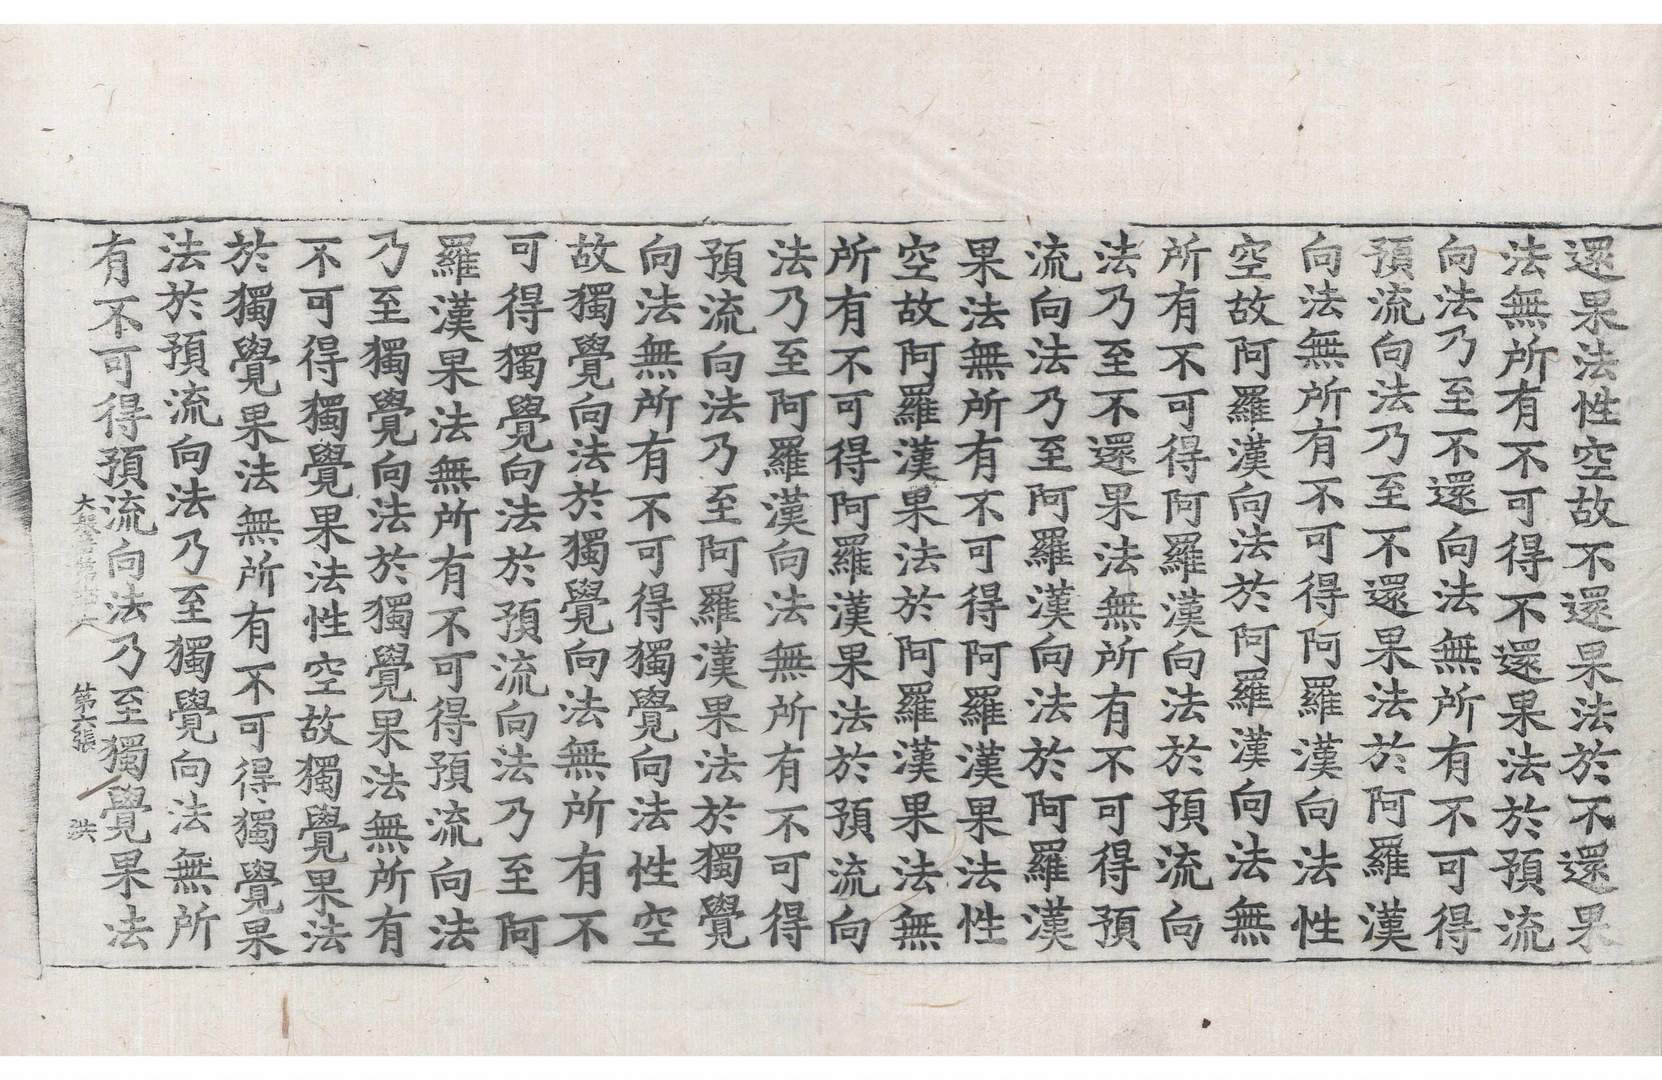 還果法性空故不還果法於不還果
法無所有不可得不還果法於預流
向法乃至不還向法無所有不可得
預流向法乃至不還果法於阿羅漢
向法無所有不可得阿羅漢向法性
空故阿羅漢向法於阿羅漢向法無
所有不可得阿羅漢向法於預流向
法乃至不還果法無所有不可得預
流向法乃至阿羅漢向法於阿羅漢
果法無所有不可得阿羅漢果法性
空故阿羅漢果法於阿羅漢果法無
所有不可得阿羅漢果法於預流向
法乃至阿羅漢向法無所有不可得
預流向法乃至阿羅漢果法於獨覺
向法無所有不可得獨覺向法性空
故獨覺向法於獨覺向法無所有不
可得獨覺向法於預流向法乃至阿
羅漢果法無所有不可得預流向法
乃至獨覺向法於獨覺果法無所有
不可得獨覺果法性空故獨覺果法
於獨覺果法無所有不可得獨覺果
法於預流向法乃至獨覺向法無所
有不可得預流向法乃至獨覺果法
大般 第六張 洪